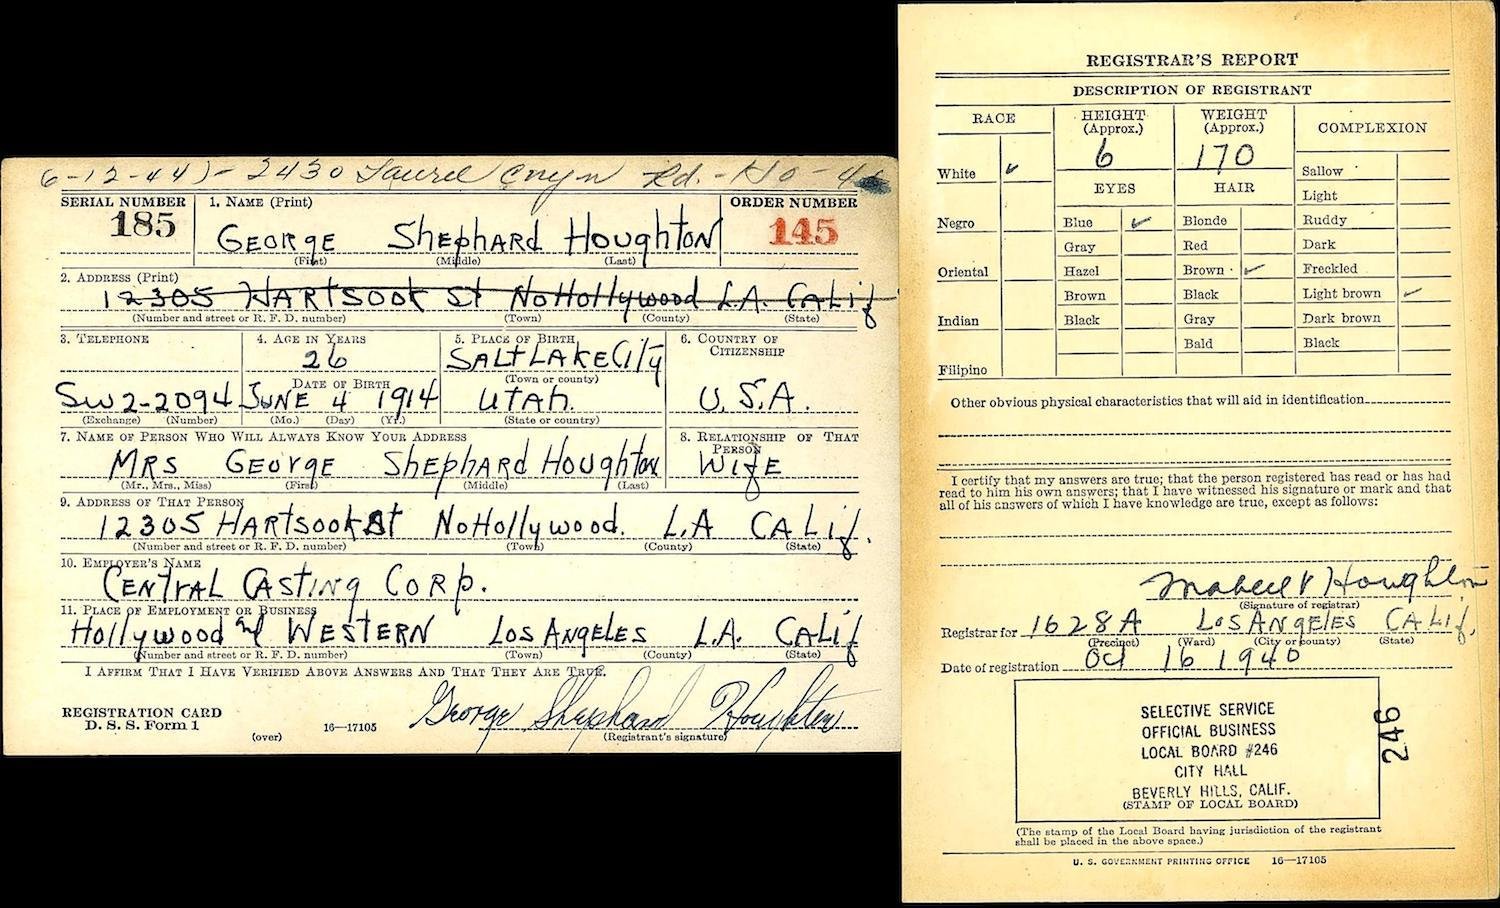 6-12-44)- 2430 Laurel Cnyn Rd. - Ho - 46
SERIAL NUMBER 1. NAME (Print) ORDER NUMBER
185 GEORGE ShephARd HoughtoN 145
(First) (Middle) (Last)
2. ADDRESS (Print)
12305 HARTSOOK St NoHollywood L.A. CALif
(Number and street or R. F. D. number) (Town) (County) (State)
3. TELEPHONE 4. AGE IN YEARS 5. PLACE OF BIRTH 6. COUNTRY OF CITIZENSHIP
26 SALT LAKE CiTy
DATE OF BIRTH (Town or county)
SW2-2094 JUNE 4 1914 UTAH. U.S.A.
(Exchange) (Number) (Mo.) (Day) (Yr.) (State or country)
7. NAME OF PERSON WHO WILL ALWAYS KNOW YOUR ADDRESS 8. RELATIONSHIP OF THAT PERSON
MRS GEORGE ShephARd Houghton WifE
(Mr., Mrs., Miss) (First) (Middle) (Last)
9. ADDRESS OF THAT PERSON
12305 HARTSOOK St NoHollywood. L.A CALif.
(Number and street or R. F. D. number) (Town) (County) (State)
10. EMPLOYER'S NAME
CENTRAL CASTING CORp.
11. PLACE OF EMPLOYMENT OR BUSINESS
Hollywood and WESTERN LOS ANGELES L.A. CALif
(Number and street or R. F. D. number) (Town) (County) (State)
I AFFIRM THAT I HAVE VERIFIED ABOVE ANSWERS AND THAT THEY ARE TRUE.
George Shephard Houghton
REGISTRATION CARD
D. S. S. Form 1 (over) 16—17105 (Registrant's signature)
REGISTRAR'S REPORT
DESCRIPTION OF REGISTRANT
RACE HEIGHT (Approx.) WEIGHT (Approx.) COMPLEXION
6 170
White ✓ Sallow
EYES HAIR Light
Negro Blue ✓ Blonde Ruddy
Gray Red Dark
Oriental Hazel Brown ✓ Freckled
Brown Black Light brown ✓
Indian Black Gray Dark brown
Bald Black
Filipino
Other obvious physical characteristics that will aid in identification
I certify that my answers are true; that the person registered has read or has had
read to him his own answers; that I have witnessed his signature or mark and that
all of his answers of which I have knowledge are true, except as follows:
Mabell V Houghton
(Signature of registrar)
Registrar for 1628A LOS ANGELES CALif.
(Precinct) (Ward) (City or county) (State)
Date of registration Oct 16 1940
SELECTIVE SERVICE
OFFICIAL BUSINESS
LOCAL BOARD #246
CITY HALL
BEVERLY HILLS, CALIF.
(STAMP OF LOCAL BOARD)
246
(The stamp of the Local Board having jurisdiction of the registrant
shall be placed in the above space.)
U. S. GOVERNMENT PRINTING OFFICE 16—17105